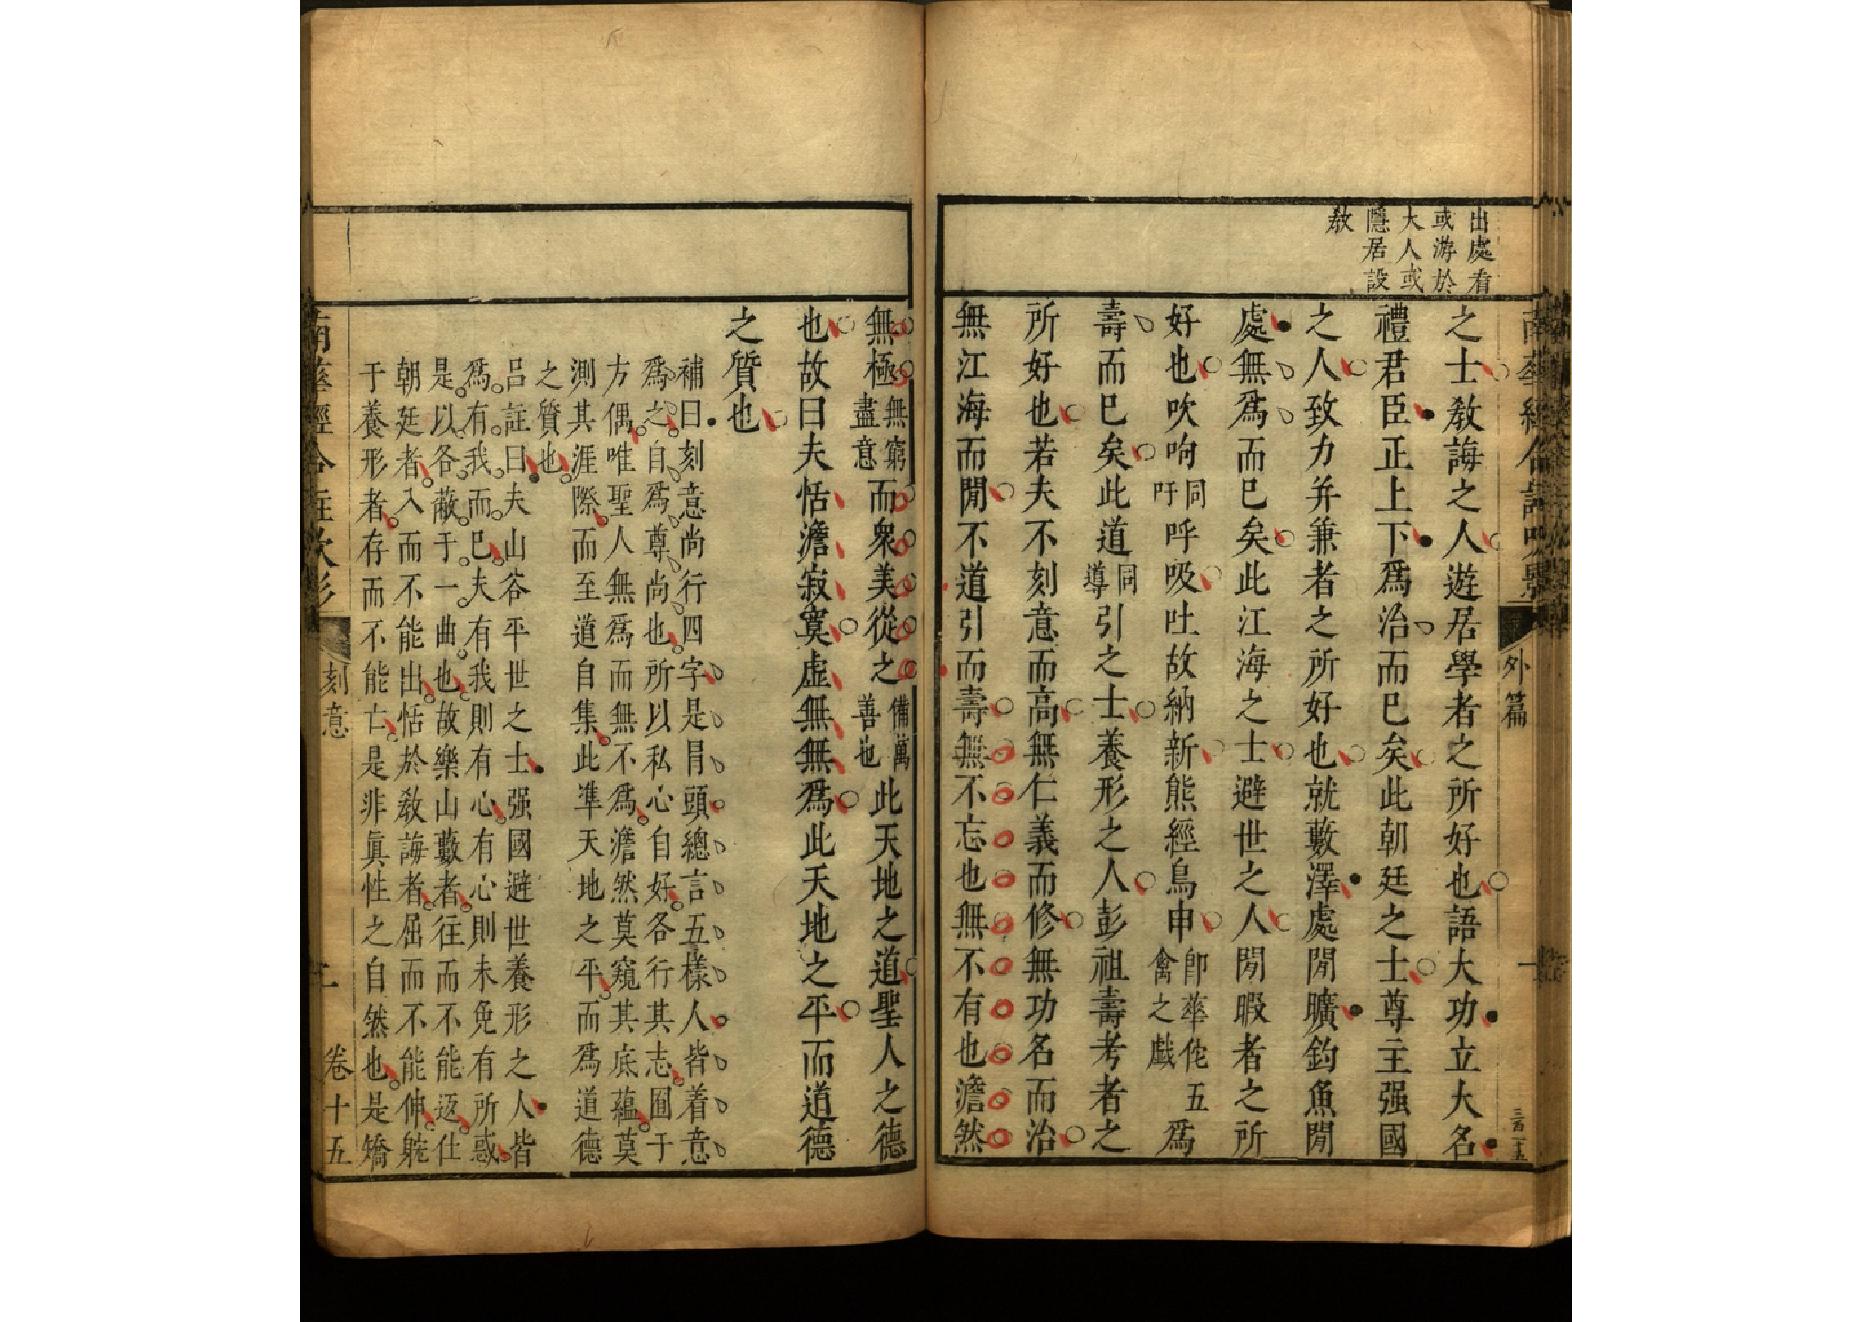 出處看
或游於
大人或
隱居設
敎
南華經合註吹影
外篇
之士敎誨之人遊居學者之所好也語大功立大名
禮君臣正上下爲治而巳矣此朝廷之士尊主强國
之人致力并兼者之所好也就藪澤處閒曠釣魚閒
處無爲而巳矣此江海之士避世之人閒暇者之所
好也吹呴同吁呼吸吐故納新熊經鳥申卽華佗五禽之戲爲
壽而巳矣此道同導引之士養形之人彭祖壽考者之
所好也若夫不刻意而高無仁義而修無功名而治
無江海而閒不道引而壽無不忘也無不有也澹然
無極無窮盡意而衆美從之備萬善也此天地之道聖人之德
也故曰夫恬澹寂寞虛無無爲此天地之平而道德
之質也
補曰刻意尚行四字是冐頭總言五樣人皆着意
爲之自爲尊尚也所以私心自好各行其志囿于
方偶唯聖人無爲而無不爲澹然莫窺其底蘊莫
測其涯際而至道自集此凖天地之平而爲道德
之質也
呂註曰夫山谷平世之士强國避世養形之人皆
爲有我而巳夫有我則有心有心則未免有所惑
是以各蔽于一曲也故樂山藪者往而不能返仕
朝廷者入而不能出恬於敎誨者屈而不能伸躭
于養形者存而不能亡是非眞性之自然也是矯
南華經合註吹影
刻意
二
卷十五